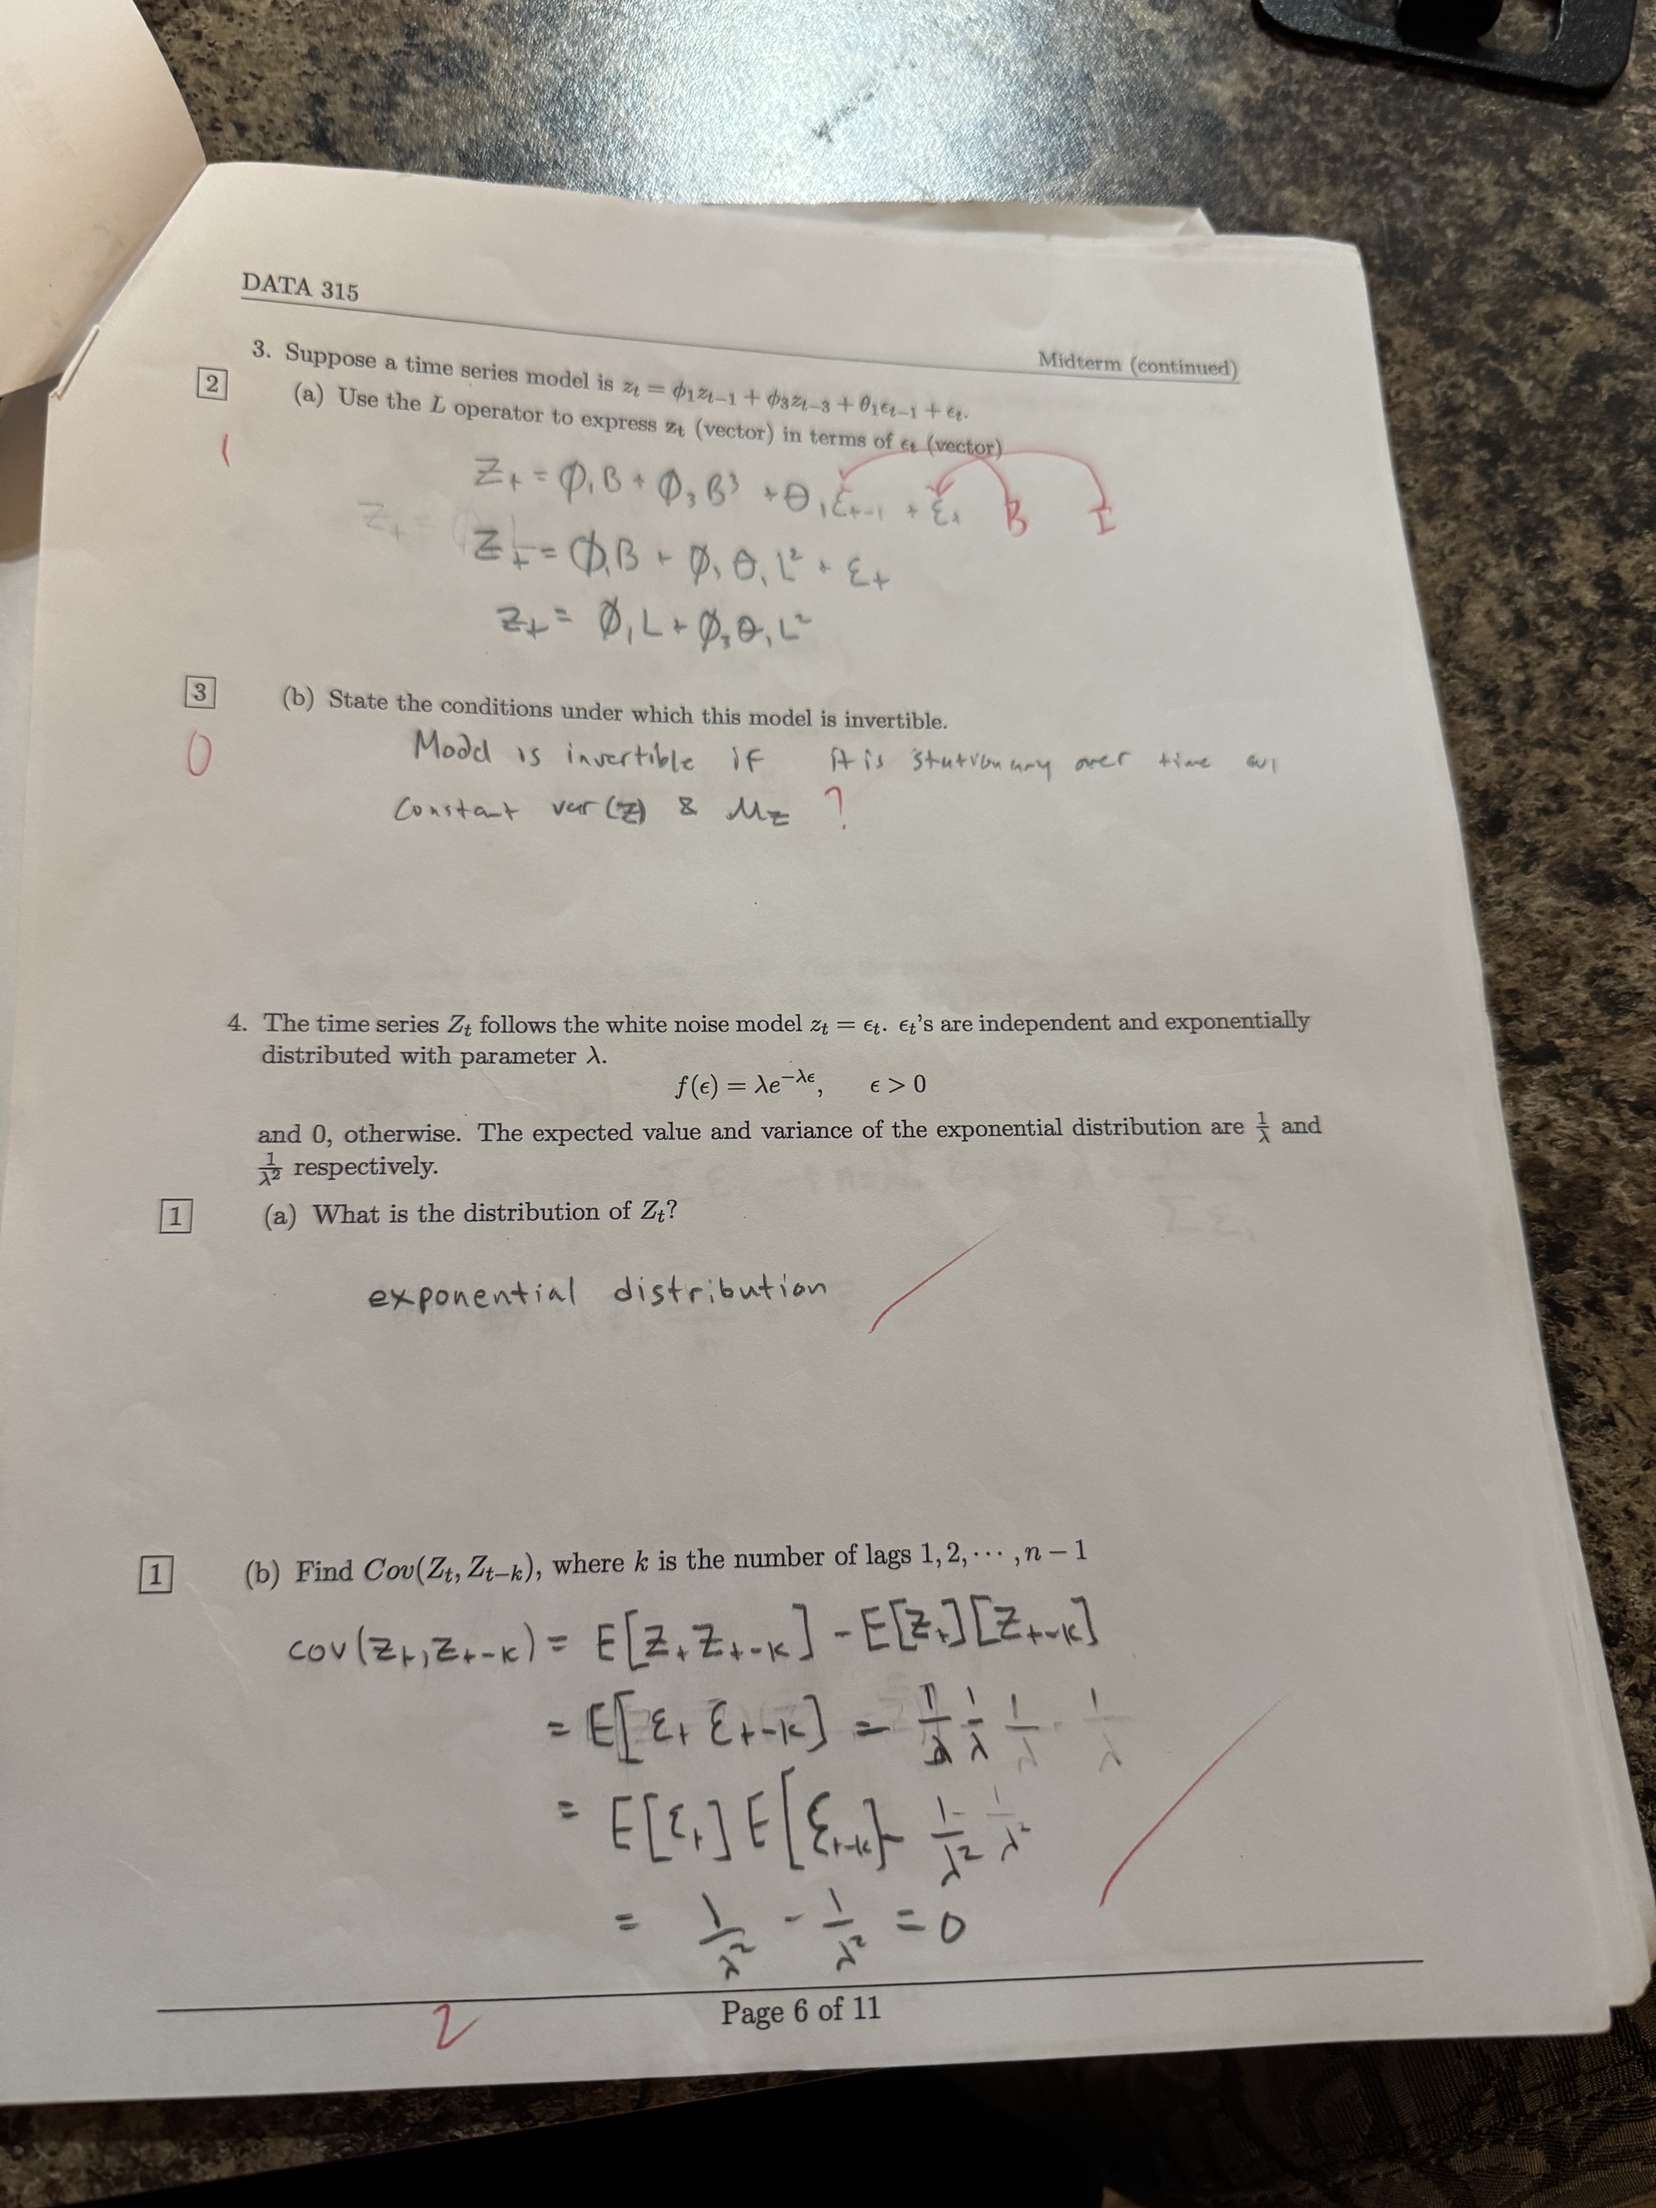 DATA 315
Midterm (continued)
3. Suppose a time series model is zₜ = ϕ₁zₜ₋₁ + ϕ₃zₜ₋₃ + θ₁ϵₜ₋₁ + ϵₜ.
2 (a) Use the L operator to express zₜ (vector) in terms of ϵₜ (vector)
1
Zₜ = ϕ₁B + ϕ₃B³ + θ₁Ɛₜ₋₁ + Ɛₜ B I
Zₜ =
Zₜ = ϕ₁B + ϕ₁θ₁L² + Ɛₜ
Zₜ = ϕ₁L + ϕ₃θ₁L²
3 (b) State the conditions under which this model is invertible.
0
Model is invertible if it is stationary over time
constant var(Z) & μz ?
4. The time series Zₜ follows the white noise model zₜ = ϵₜ. ϵₜ's are independent and exponentially
distributed with parameter λ.
f(ϵ) = λe^{-λϵ}, ϵ > 0
and 0, otherwise. The expected value and variance of the exponential distribution are 1/λ and
1/λ² respectively.
1 (a) What is the distribution of Zₜ?
exponential distribution
1 (b) Find Cov(Zₜ, Zₜ₋ₖ), where k is the number of lags 1, 2, ⋯ , n − 1
cov(Zₜ, Zₜ₋ₖ) = E[Zₜ Zₜ₋ₖ] - E[Zₜ][Zₜ₋ₖ]
= E[Ɛₜ Ɛₜ₋ₖ] - 1/λ 1/λ 1/λ · 1/λ
= E[Ɛₜ] E[Ɛₜ₋ₖ] - 1/λ² 1/λ²
= 1/λ² - 1/λ² = 0
2
Page 6 of 11